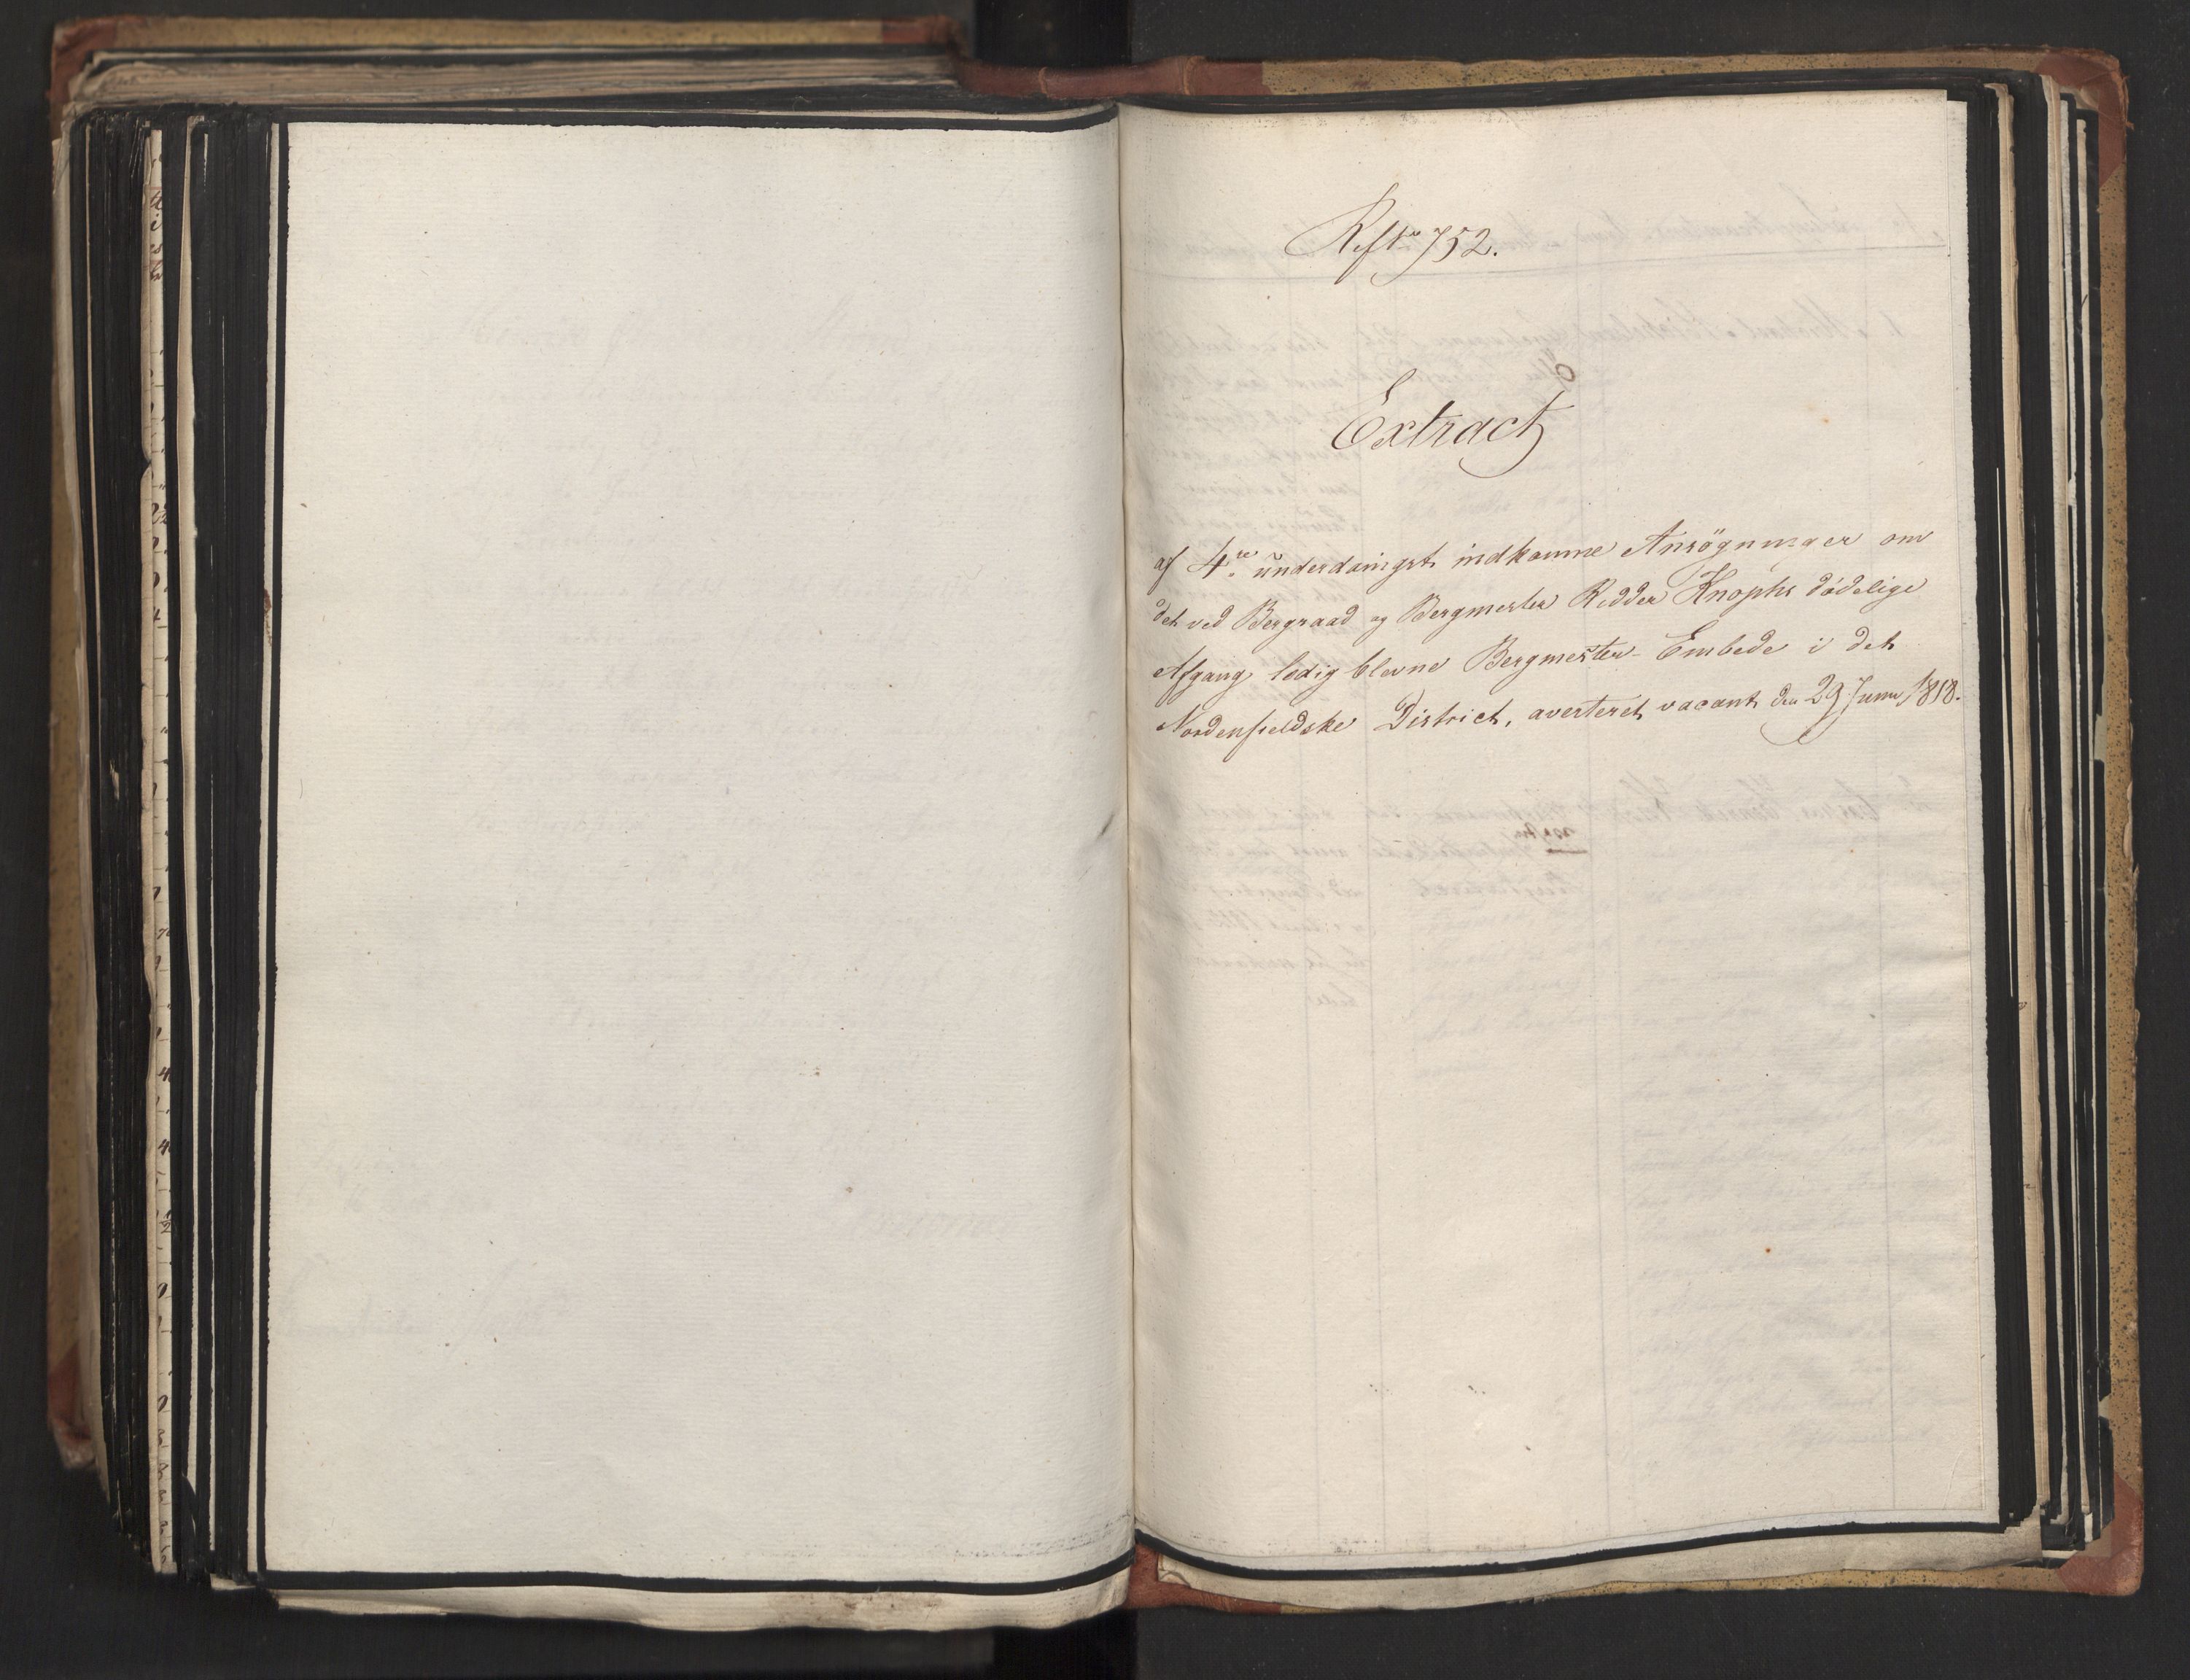 No 752.
Extract
af 4re underdanigst indkomne Ansögninger om
det ved Bergraad og Bergmester Ridder Knophs dödelige
Afgang ledig blevne Bergmester-Embede i det
Nordenfieldske District, averteret vacant den 29 Juni 1818.